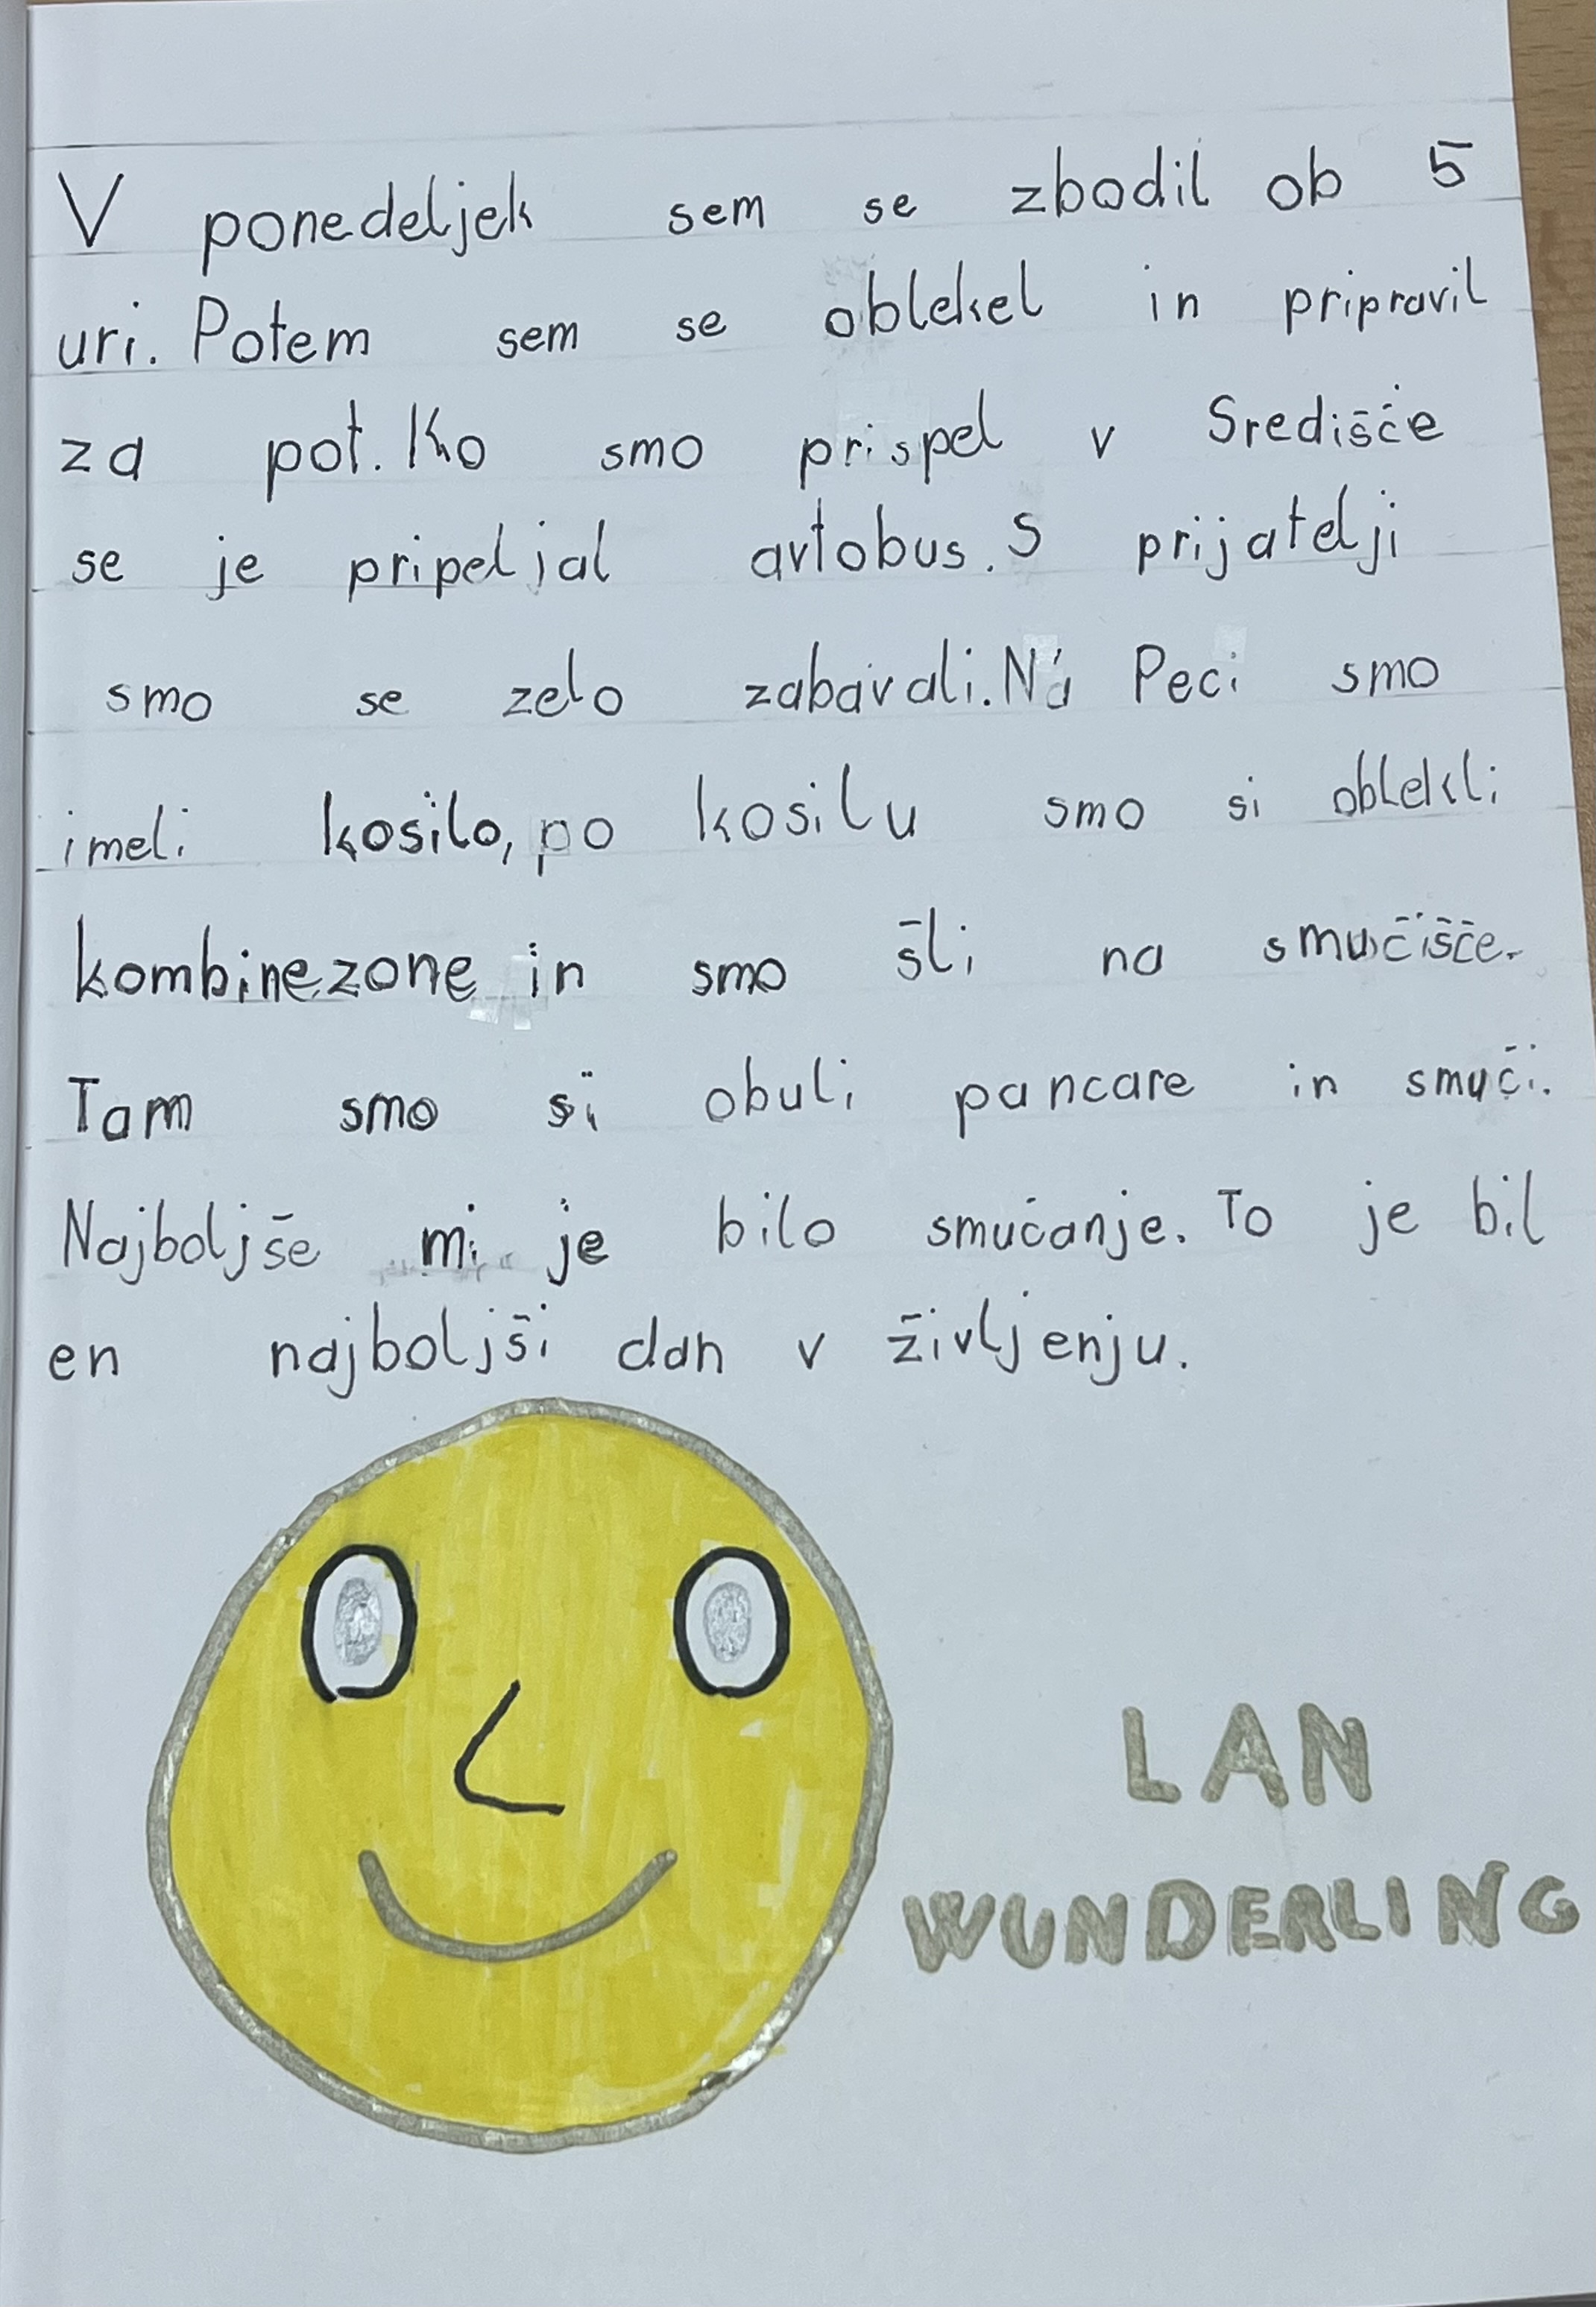 V ponedeljek sem se zbodil ob 5
uri. Potem sem se oblekel in pripravil
za pot. Ko smo prispel v Središče
se je pripeljal avtobus. S prijatelji
smo se zelo zabavali. Na Peci smo
imeli kosilo, po kosilu smo si oblekli
kombinezone in smo šli na smučišče.
Tam smo si obuli pancare in smuči.
Najboljše mi je bilo smučanje. To je bil
en najboljši dan v življenju.
LAN
WUNDERLING